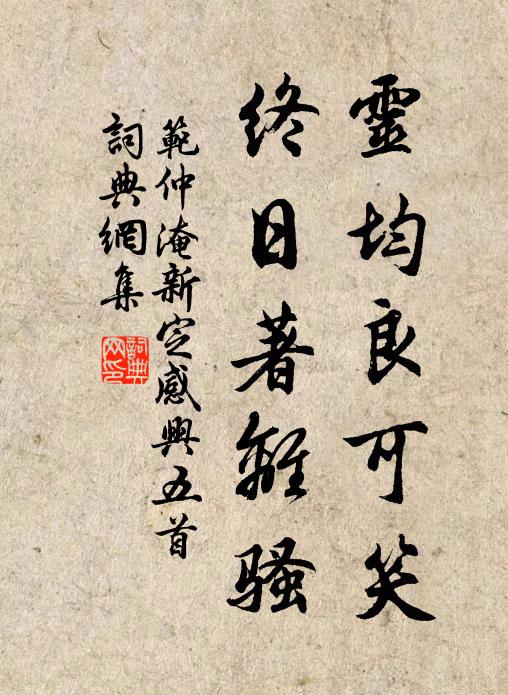 靈均良可笑
終日著離騷
範仲淹新定感興五首
詞典網集
詞典網印